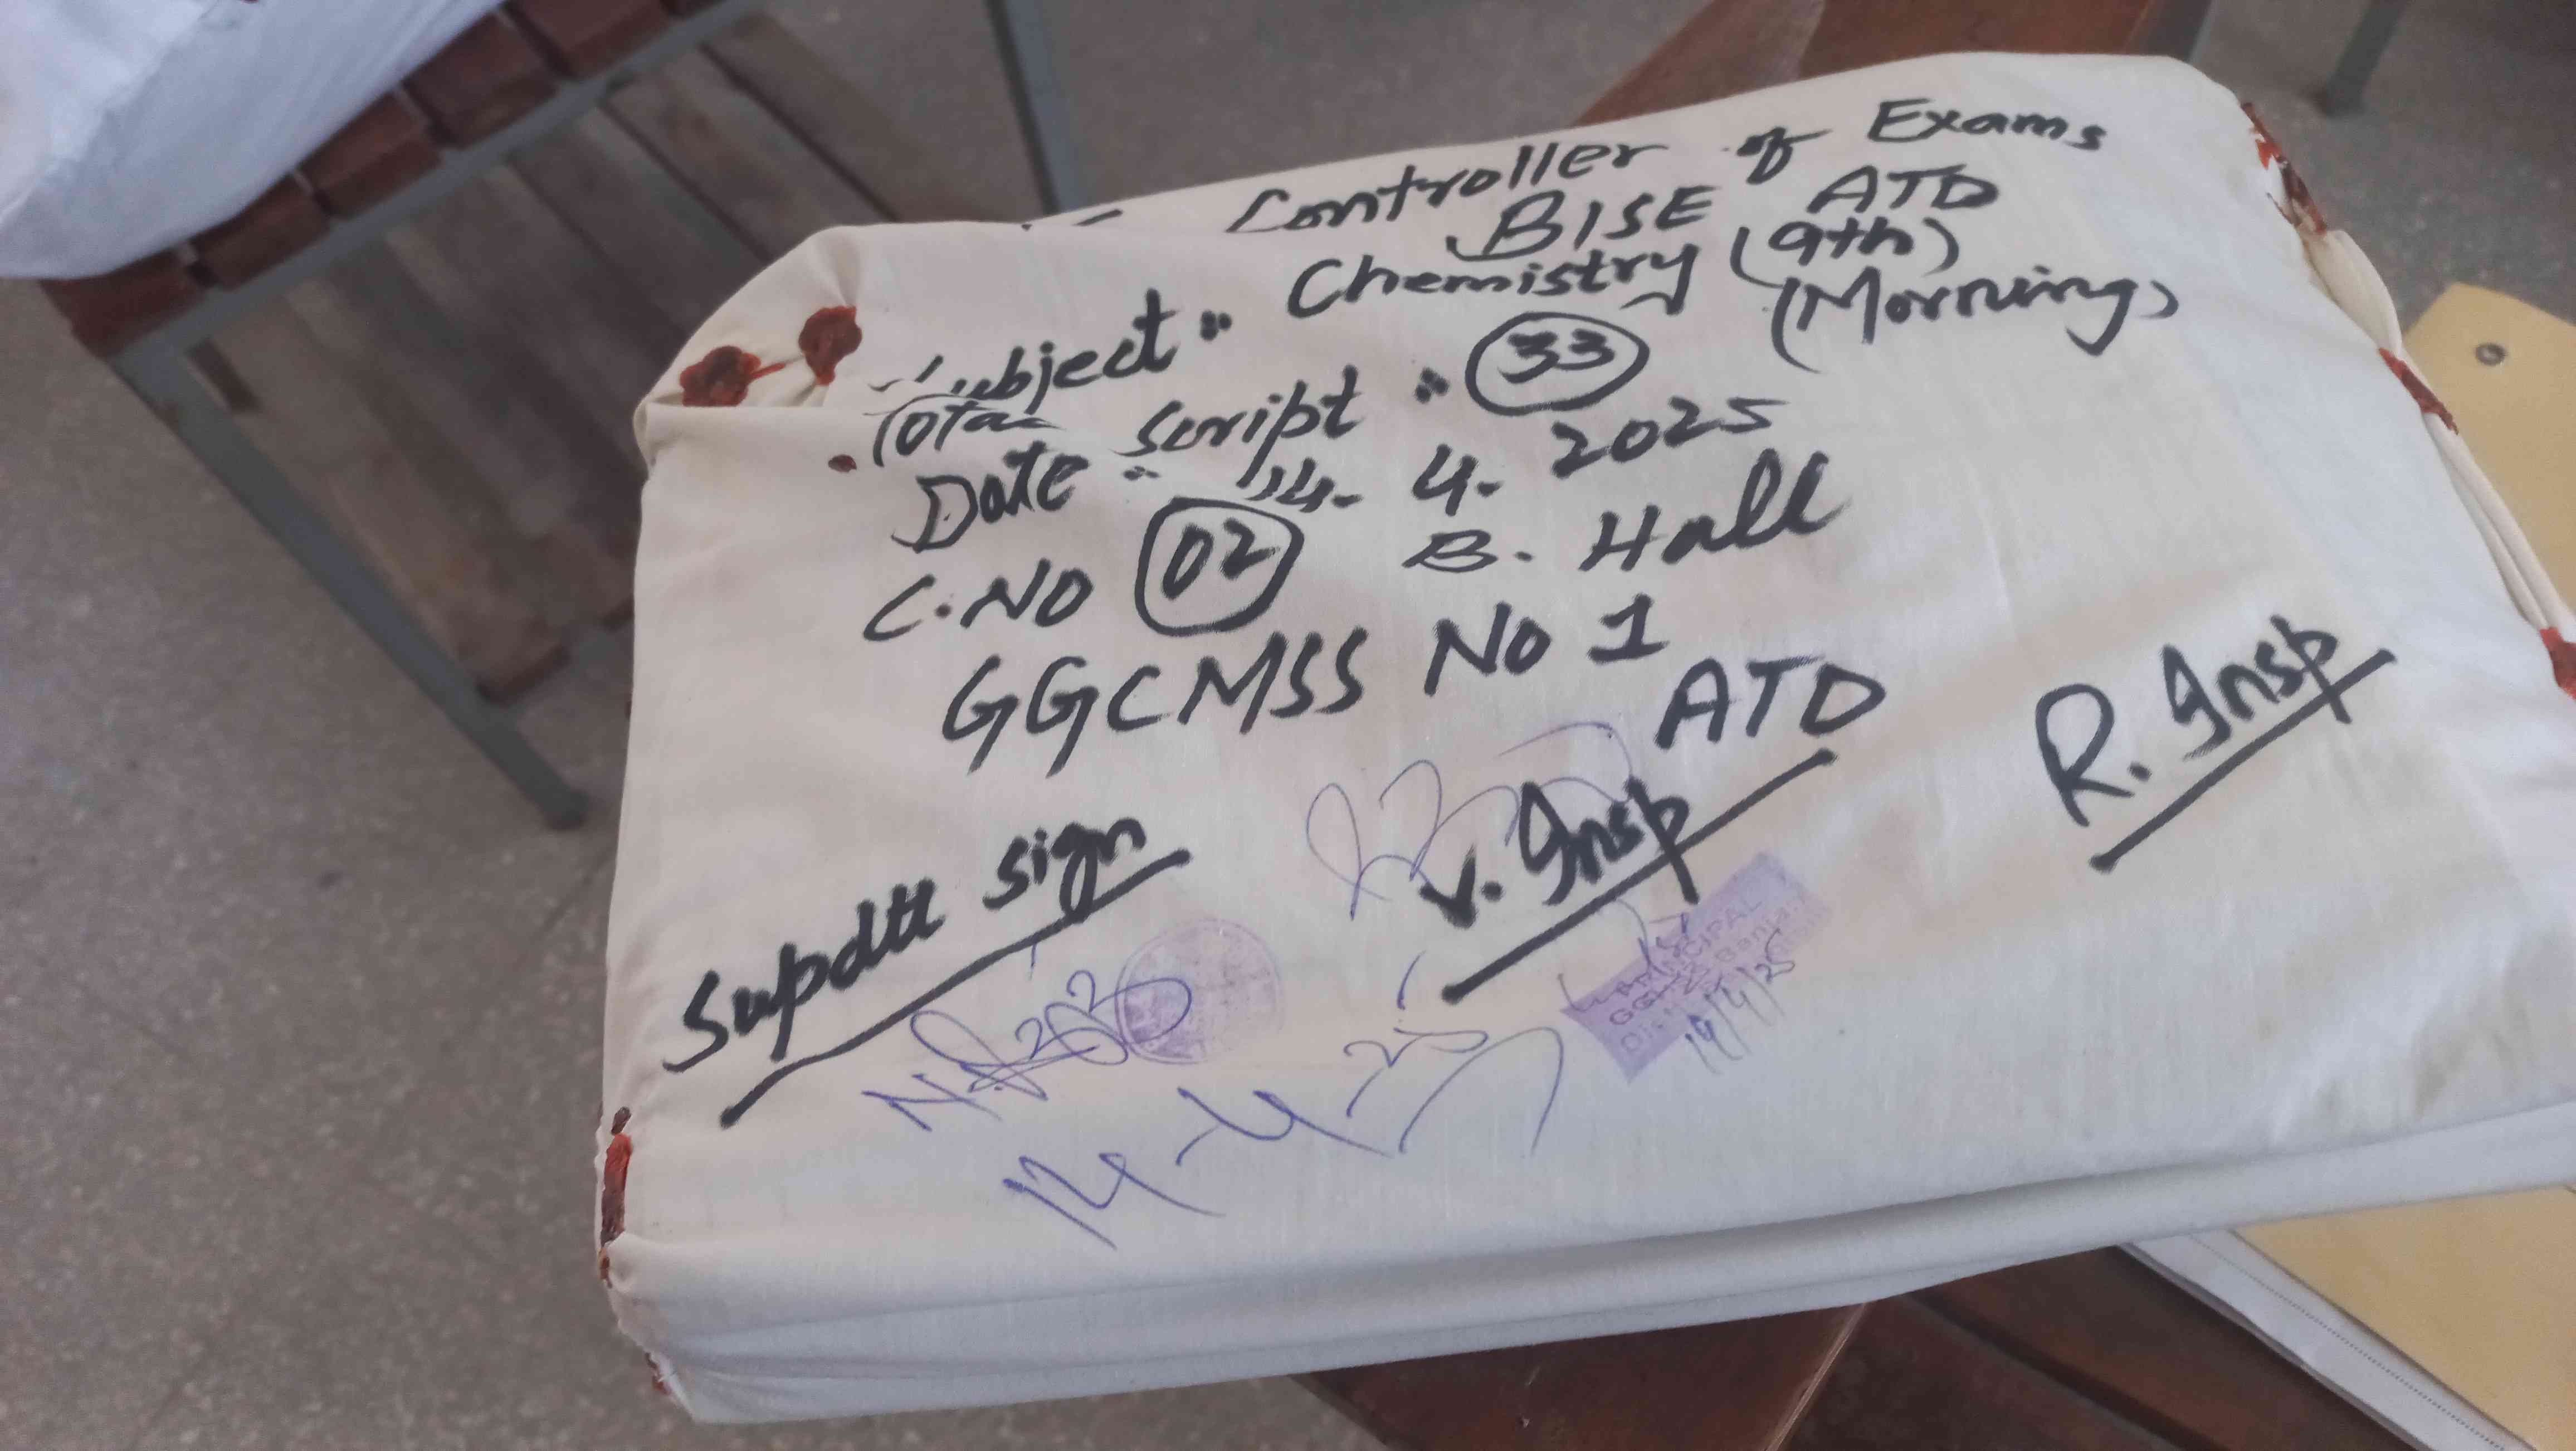 Controller of Exams
BISE ATD
Subject: Chemistry (9th)
(Morning)
Total Script: 33
Date: 14-4-2025
C.NO 02 B. Hall
GGCMSS No 1
ATD
Supdtt sign
V. Insp
R. Insp
14-4-25
PRINCIPAL
14/4/25